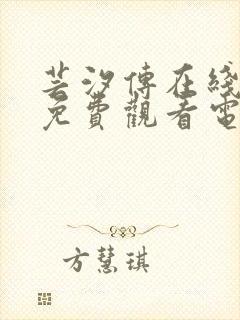 芸汐傳在綫
免費觀看電
方慧琪